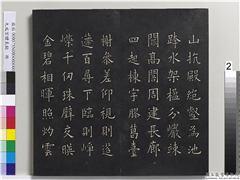 山抗殿絕壑為池
跨水架楹分巖竦
闕高閣周建長廊
四起棟宇膠葛臺
榭參差仰視則迢
遰百尋下臨則崢
嶸千仞珠璧交暎
金碧相暉照灼雲
2